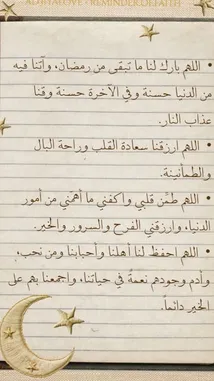 ADHYALOVE - REMINDER OF FAITH
• اللهم بارك لنا ما تبقى من رمضان، وآتنا فيه
من الدنيا حسنة وفي الآخرة حسنة وقنا
عذاب النار.
• اللهم ارزقنا سعادة القلب وراحة البال
والطمأنينة.
• اللهم طمّن قلبي واكفني ما أهمني من أمور
الدنيا، وارزقني الفرح والسرور والخير.
• اللهم احفظ لنا أهلنا وأحبابنا ومن نحب،
وأدم وجودهم نعمةً في حياتنا، واجمعنا بهم على
الخير دائماً.